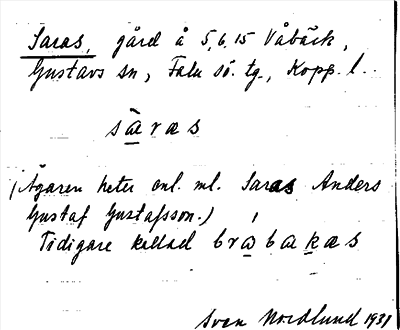 Saras, gård å 5,6,15 Våbäck,
Gustavs sn, Falu sö. tg., Kopp. l.
sàras
(Ägaren heter enl. ml. Saras Anders
Gustaf Gustafsson.)
Tidigare kallad bråbakas
Sven Nordlund 1931